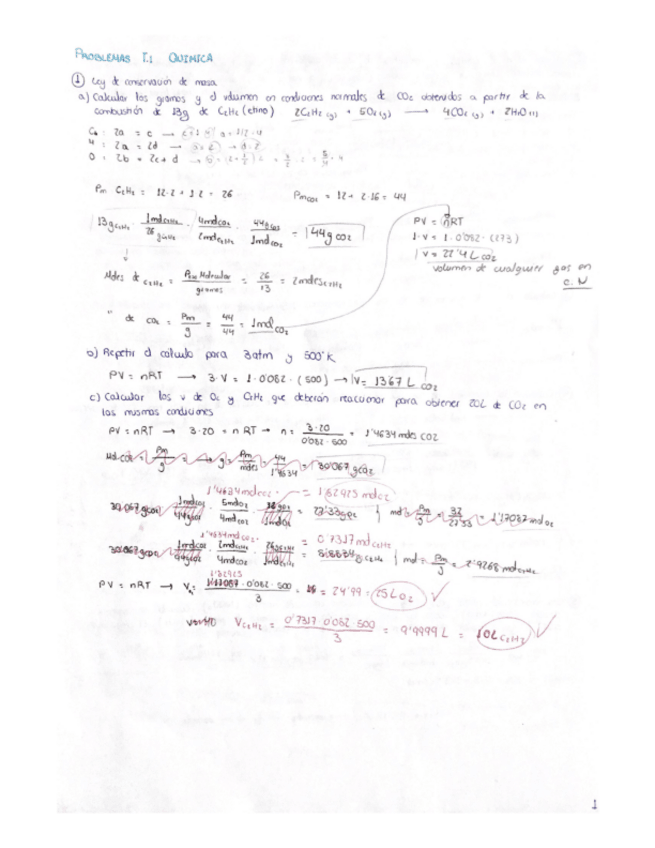 PROBLEMAS T.1 QUIMICA
① Ley de conservación de masa
a) Calcular los gramos y el volumen en condiciones normales de CO2 obtenidos a partir de la
combustión de 13g de C2H2 (etino) 2C2H2 (g) + 5O2 (g) → 4CO2 (g) + 2H2O (l)
C: 2a = c
H: 2a = 2d
O: 2b = 2c + d
Pm C2H2 = 12·2 + 1·2 = 26 Pm CO2 = 12 + 2·16 = 44
13g C2H2 · 1mol C2H2 / 26 g C2H2 · 4mol CO2 / 2mol C2H2 · 44g CO2 / 1mol CO2 = 44g CO2
PV = nRT
1·V = 1·0'082·(273)
V = 22'4 L CO2
volumen de cualquier gas en
C.N
Moles de C2H2 = Pm Molecular / gramos = 26 / 13 = 2moles C2H2
" de CO2 = Pm / g = 44 / 44 = 1mol CO2
b) Repetir el cálculo para 3atm y 500°K
PV = nRT → 3·V = 1·0'082·(500) → V = 13'67 L CO2
c) Calcular los V de O2 y C2H2 que deberán reaccionar para obtener 20L de CO2 en
las mismas condiciones
PV = nRT → 3·20 = nRT → n = 3·20 / 0'082·500 = 1'4634 moles CO2
30'067 g CO2
1'4634 mol CO2 · = 1'82925 mol O2
5mol O2 / 4mol CO2
1'4634 mol CO2 · = 0'7317 mol C2H2
2mol C2H2 / 4mol CO2
PV = nRT → V = 1'82925 · 0'082 · 500 / 3 = 24'99 = 25L O2
V C2H2 = 0'7317 · 0'082 · 500 / 3 = 9'9999 L = 10L C2H2
1